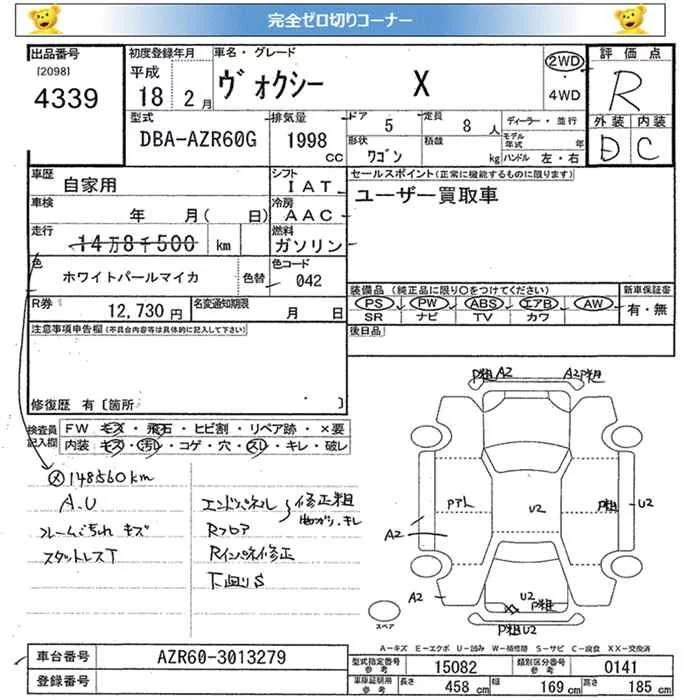 完全ゼロ切りコーナー
出品番号
[2098]
4339
初度登録年月
平成
18 2月
車名・グレード
ヴォクシー X
2WD
・
4WD
評価点
R
外装 内装
D C
型式
DBA-AZR60G
排気量
1998
cc
ドア
5
定員
8 人
形状
ワゴン
積載
kg
ディーラー・並行
モデル年式 年
ハンドル 左・右
車歴
自家用
シフト
IAT
車検
年 月( 日)
冷房
AAC
走行
14万8千500 km
燃料
ガソリン
色
ホワイトパールマイカ
色替
色コード
042
R券
12,730 円
名変通知期限
月 日
セールスポイント(正常に機能するものに限ります)
ユーザー買取車
装備品 (純正品に限り〇をつけてください)
PS PW ABS エアB AW
SR ナビ TV カワ
新車保証書
有・無
後日品
注意事項申告欄(不具合内容等は具体的に記入して下さい)
修復歴 有 [箇所 ]
検査員記入欄
FW キズ・飛石・ヒビ割・リペア跡・×要
内装 キズ・汚れ・コゲ・穴・スレ・キレ・破レ
148560km
A.U
フレームさられ キズ
スタットレスT
エンドパネル
Rフロア
修正粗
Rインパネ修正
下廻りS
P粗 A2 A2P粗
Pアト
U2
P粗 U2
A2
A2
U2
XX P粗
P粗U2
スペア
A−キズ E−エクボ U−凹み W−補修跡 S−サビ C−腐食 XX−交換済
車台番号
AZR60-3013279
登録番号
型式指定番号
参考
15082
類別区分番号
参考
0141
車庫証明用
参考
長さ
458 cm
幅
169 cm
高さ
185 cm